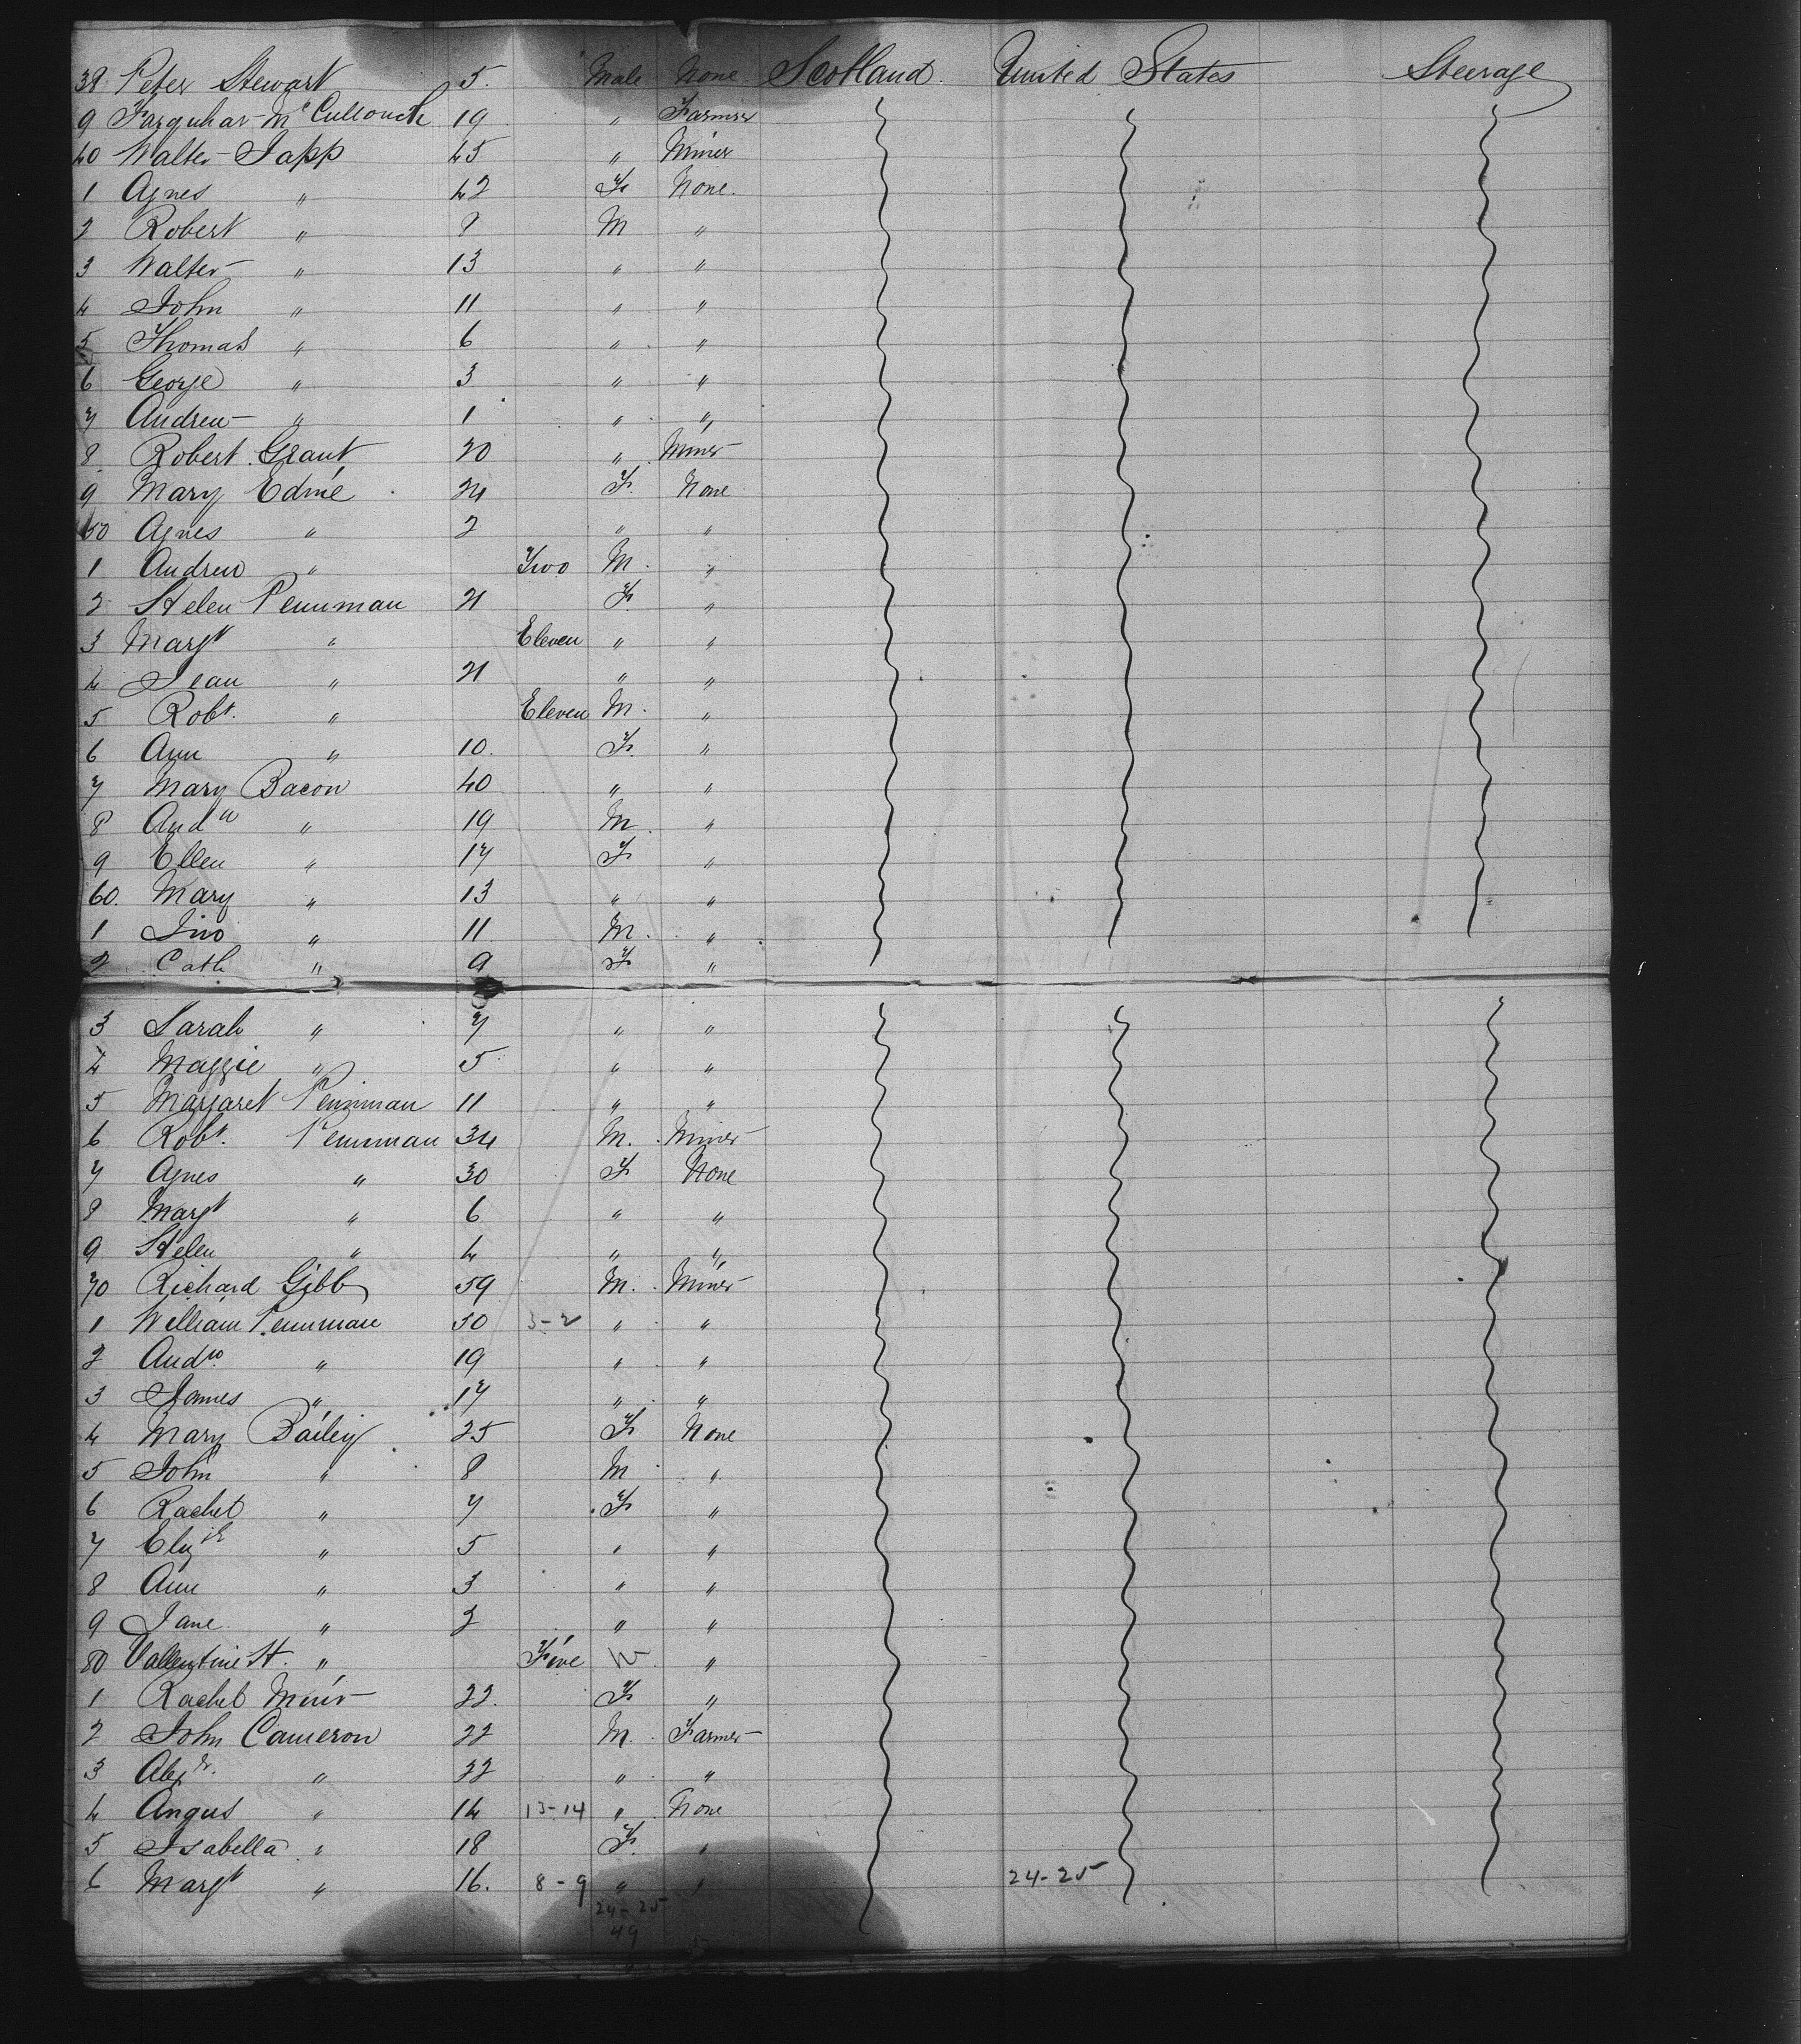 38 Peter Stewart 5. Male None Scotland. United States Steerage
9 Farquhar McCullouch 19 " Farmer
40 Walter Japp 45 " Miner
1 Agnes " 42 F None.
2 Robert " 8 M "
3 Walter " 13 " "
4 John " 11 " "
5 Thomas " 6 " "
6 George " 3 " "
7 Andrew " 1 " "
8 Robert Grant 20 " Miner
9 Mary Edmé 24 F. None
50 Agnes " 2 " "
1 Andrew " Two M. "
2 Helen Penman 21 F. "
3 Margt " Eleven " "
4 Jean " 21 " "
5 Robt. " Eleven M. "
6 Ann " 10. F. "
7 Mary Bacon 40 " "
8 Andw " 19 M. "
9 Ellen " 17 F "
60. Mary " 13 " "
1 Jno " 11 M. "
2 Cath " 9 F "
3 Sarah " 7 " "
4 Maggie " 5 " "
5 Margaret Penman 11 " "
6 Robt. Penman 34 M. Miner
7 Agnes " 30 F None
8 Margt " 6 " "
9 Helen " 4 " "
70 Richard Gibb 59 M. Miner
1 William Penman 50 3-2 " "
2 Andw. " 19 " "
3 James " 17 " "
4 Mary Bailey 25 F None
5 John " 8 M "
6 Rachel " 7 F "
7 Elizth " 5 " "
8 Ann " 3 " "
9 Jane " 2 " "
80 Vallentine St. " Five "
1 Rachel Muir 22. F "
2 John Cameron 22 M. Farmer
3 Alexr. " 22 " "
4 Angus " 14 13-14 " None
5 Isabella " 18 F. "
6 Margt " 16. 8-9 " " 24-25
24-25
49